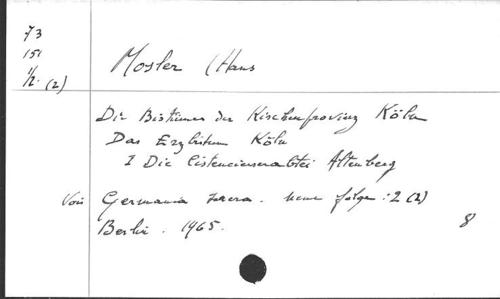 73
151
1/2. (2)
Mosler (Hans
Die Bistümer der Kirchenprovinz Köln
Das Erzbistum Köln
I Die Cistercienserabtei Altenberg
Voir Germania sacra. neue folge : 2 (2)
Berlin. 1965.
8